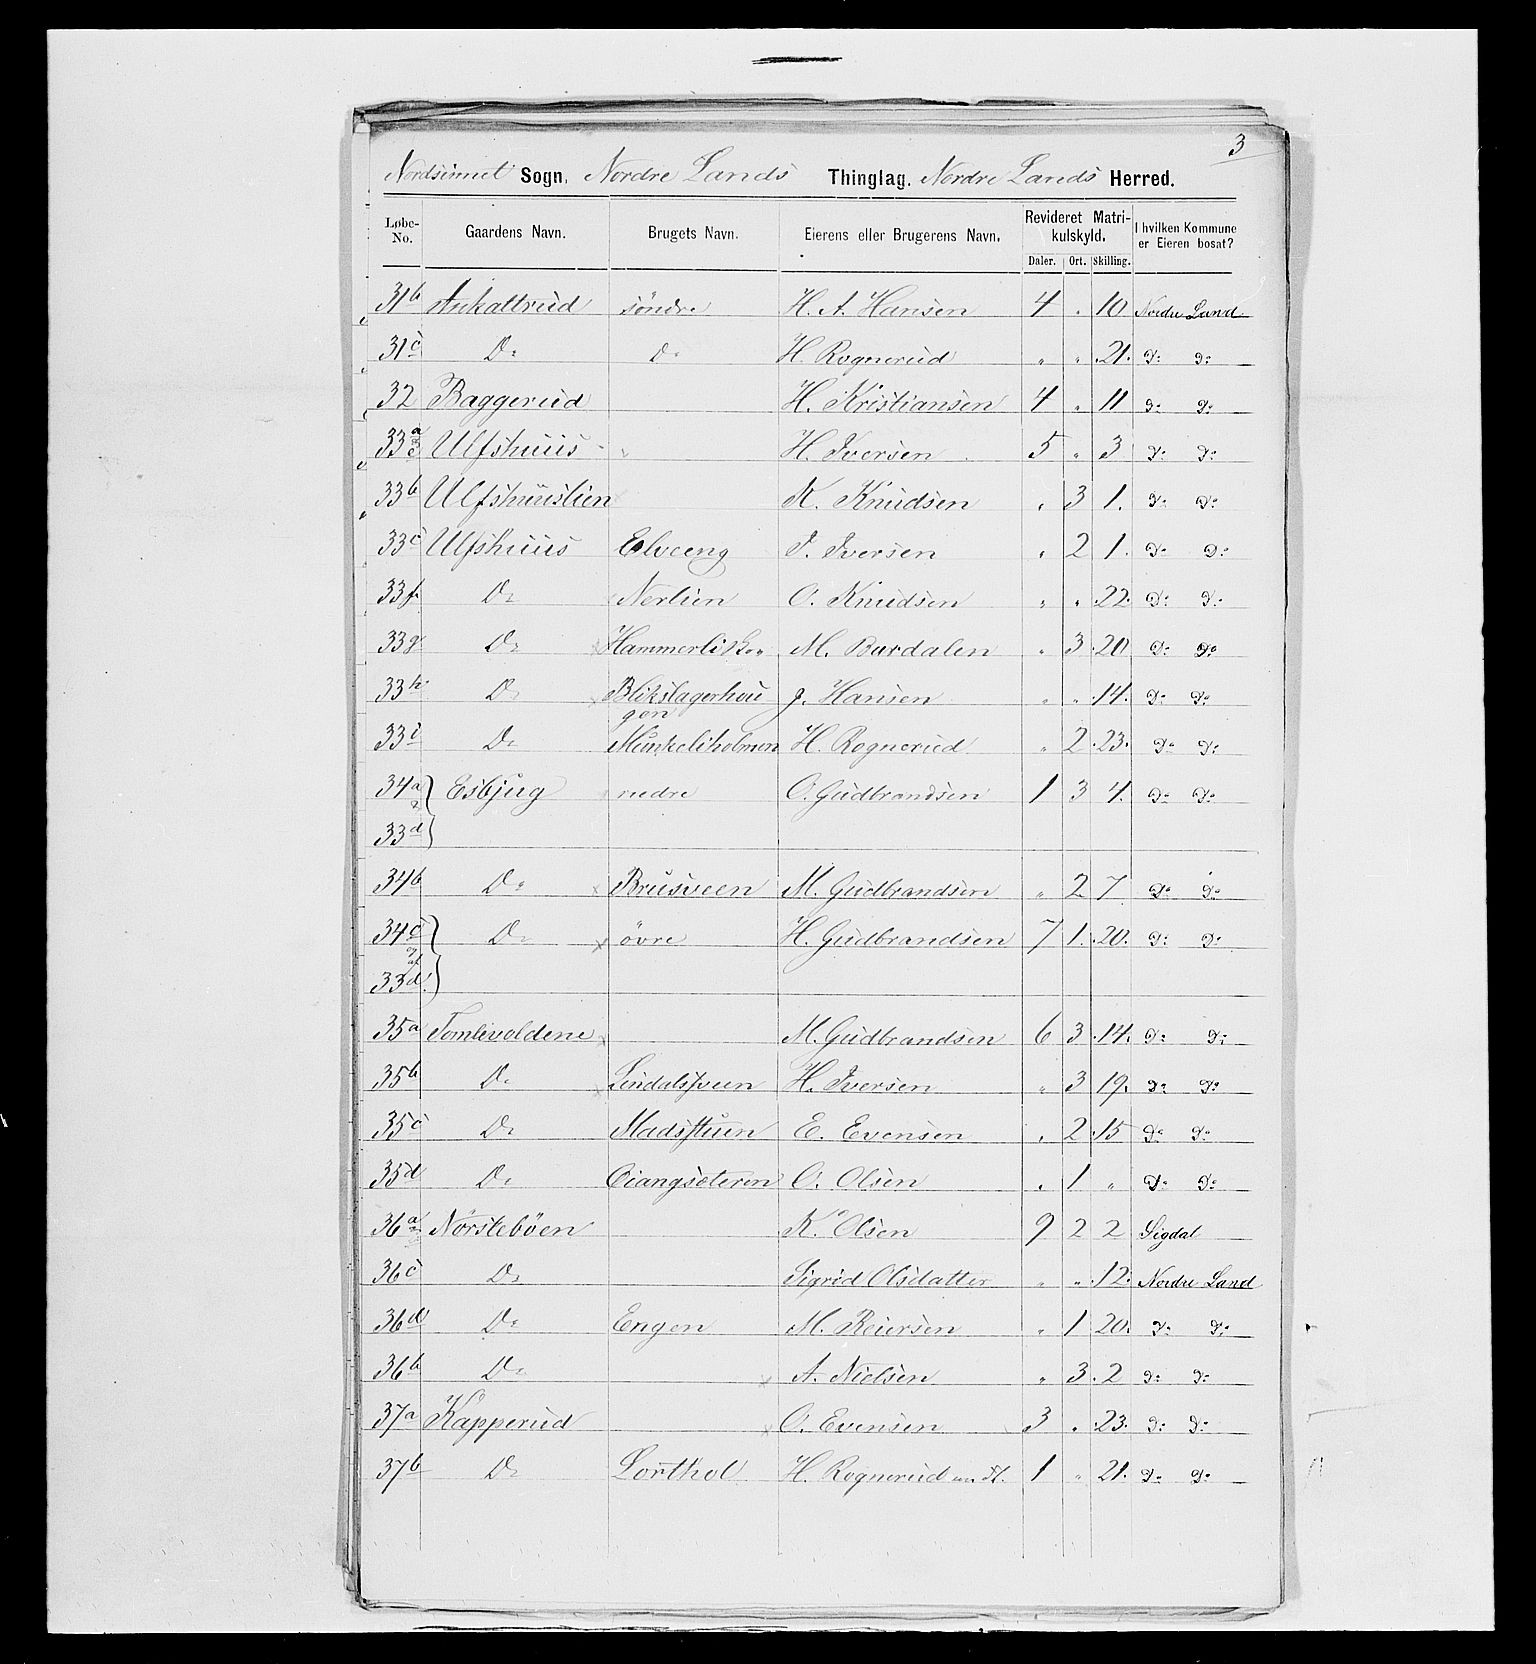 3
Nordsinnet Sogn. Nordre Lands Thinglag. Nordre Lands Herred.
Løbe-No. Gaardens Navn. Brugets Navn. Eierens eller Brugerens Navn. Revideret Matrikulskyld. I hvilken Kommune er Eieren bosat?
Daler. Ort. Skilling.
31b Askattrud söndre H. A. Hansen 4 " 10 Nordre Land
31c Do Do H. Rognerud " " 21. Do Do
32 Baggerud H. Kristiansen 4 " 11 Do Do
33a Ulfshuus H. Iversen 5 " 3 Do Do
33b Ulfshuuslien K. Knudsen " 3 1. Do Do
33c Ulfshuus Elveeng I. Iversen " 2 1. Do Do
33f Do Nerlien O. Knudsen " " 22. Do Do
33g Do M. Burdalen " 3 20 Do Do
33h Do Blikslagerhou
gen J. Hansen " " 14. Do Do
33i Do Munkeliholmen H. Rognerud " 2 23. Do Do
34a & Esbjug nedre O. Gudbrandsen 1 3 4. Do Do
33d
34b Do Brusveen M. Gudbrandsen " 2 7 Do Do
34c Do övre H. Gudbrandsen 7 1. 20. Do Do
& af
33d
35a Tomlevoldene M. Gudbrandsen 6 3 14. Do Do
35b Do Lindalsveen H. Iversen " 3 19. Do Do
35c Do Madsstuen E. Evensen " 2 15 Do Do
35d Do Oiangsæteren O. Olsen " 1 " Do Do
36a Nörsteböen K. Olsen 9 2 2 Sigdal
36c Do Sigrid Olsdatter " " 12. Nordre Land
36d Do Engen M. Reiersen " 1 20. Do Do
36b Do A. Nielsen " 3. 2 Do Do
37a Kapperud O. Evensen 3 " 23. Do Do
37b Do Lorthol H. Rognerud m. fl. 1 " 21. Do Do